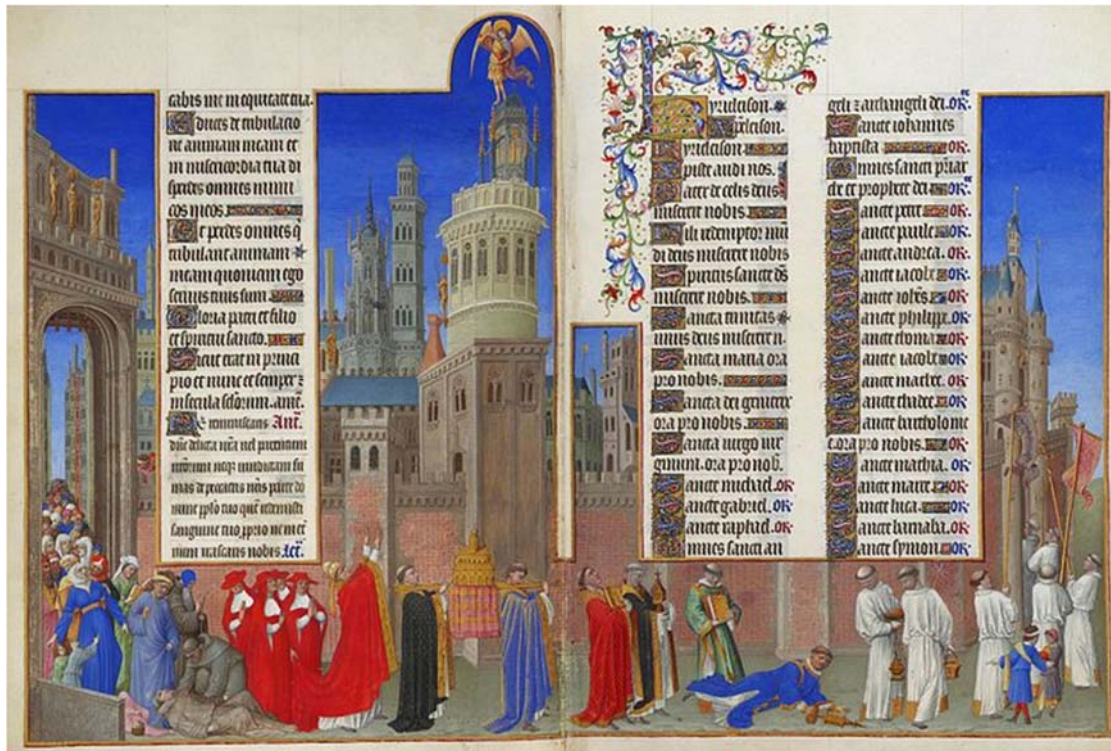 cabis me in equitate tua.
Educes de tribulacio
ne animam meam et
in misericordia tua di
sperdes omnes inimi
cos meos
Et perdes omnes q̄
tribulant animam
meam quoniam ego
servus tuus sum
Gloria patri et filio
et spiritui sancto.
Sicut erat in princi
pio et nunc et semper ⁊
in secula sclorum. amē.
Ne reminiscaris Anē.
dn̄e delicta nr̄a vel parentum
nr̄orum neqz vindictam su
mas de peccatis nr̄is parce do
mine pplo tuo quē redemisti
sanguine tuo pprio ne in et̄
num irascaris nobis
Kyrieleison
Xp̄eleison.
Kyrieleison
Xpiste audi nos.
Pater de celis deus
miserere nobis.
Fili redemptor mū
di deus miserere nobis
Spiritus sancte ds̄
miserere nobis.
Sancta trinitas
unus deus miserere n̄.
Sancta maria ora
pro nobis.
Sancta dei genitrix
ora pro nobis.
Sancta virgo vir
ginum. ora pro nob̄.
Sancte michael. OR
Sancte gabriel. OR
Sancte raphael. OR
Omnes sancti an
geli ⁊ archangeli dei. OR.
Sancte iohannes
baptista OR.
Omnes sancti p̄riar
che et prophete dei OR.
Sancte petre OR.
Sancte paule OR.
Sancte andrea. OR.
Sancte iacobe OR.
Sancte ioh̄es OR.
Sancte philippe. OR.
Sancte thoma OR.
Sancte iacobe OR.
Sancte mathee. OR.
Sancte thadee. OR.
Sancte bartholome
e. ora pro nobis. OR.
Sancte mathia. OR.
Sancte marce. OR.
Sancte luca. OR.
Sancte barnaba. OR.
Sancte symon OR.